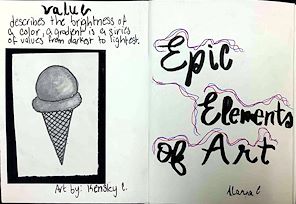 value
describes the brightness of
a color, a gradient is a siries
of values from darkest to lightest.
Art by: Kensley C.
Epic
Elements
of Art